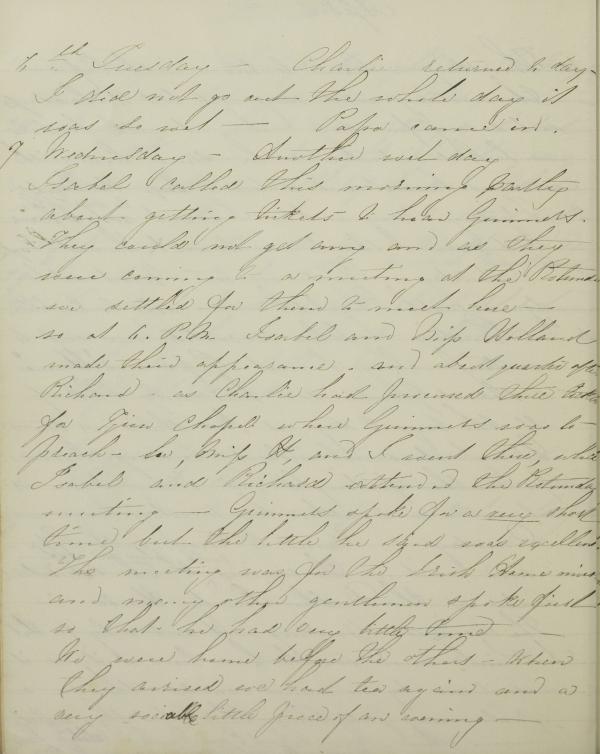 6th Tuesday - Charlie returned to day -
I did not go out the whole day it
was so wet - Papa came in.
7 Wednesday - Another wet day
Isabel called this morning partly
about getting tickets to hear Guinness.
They could not get any and as they
were coming to a meeting at the Rotunda
we settled for them to meet here -
so at 6. P.M. Isabel and Miss Holland
made their appearance. and about quarter after
Richard - as Charlie had procured three tickets
for Zion Chapel where Guinness was to
preach - he, Miss H, and I went there, while
Isabel and Richard attended the Rotunda
meeting - Guinness spoke for a very short
time but the little he said was excellent.
The meeting was for the Irish Home
and many other gentlemen spoke first
so that he had very little time -
We were home before the others - when
they arrived we had tea again and a
very sociable little piece of an evening -